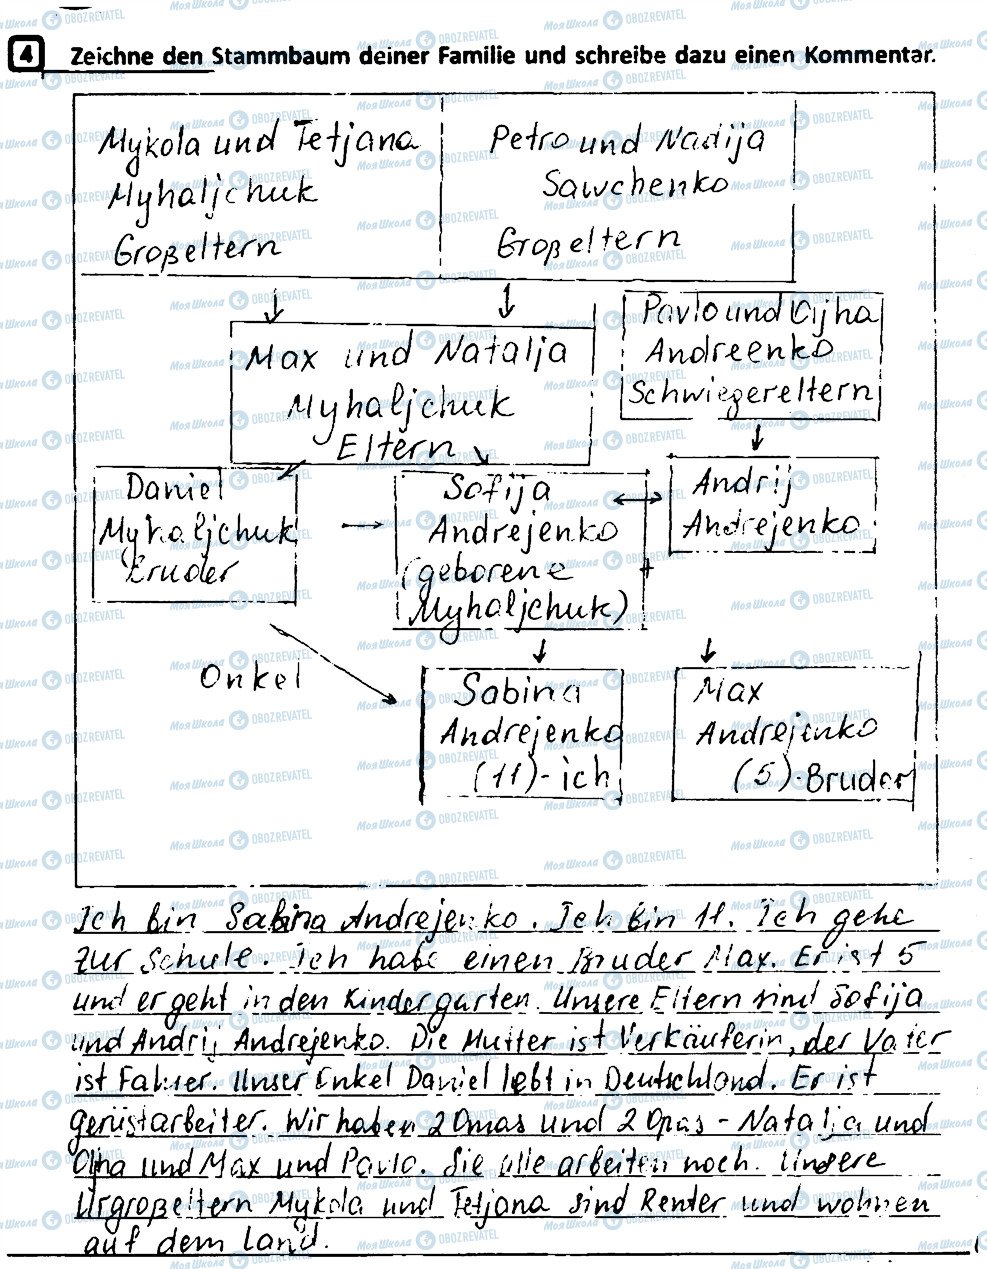 4 Zeichne den Stammbaum deiner Familie und schreibe dazu einen Kommentar.
Mykola und Tetjana
Myhaljchuk
Großeltern
Petro und Nadija
Sawchenko
Großeltern
Max und Natalja
Myhaljchuk
Eltern
Pavlo und Oljha
Andreenko
Schwiegereltern
Daniel
Myhaljchuk
Bruder
Sofija
Andrejenko
(geborene
Myhaljchuk)
Andrij
Andrejenko
Onkel
Sabina
Andrejenko
(11)-ich
Max
Andrejenko
(5)-Bruder
Ich bin Sabina Andrejenko. Ich bin 11. Ich gehe
zur Schule. Ich habe einen Bruder Max. Er ist 5
und er geht in den Kindergarten. Unsere Eltern sind Sofija
und Andrij Andrejenko. Die Mutter ist Verkäuferin, der Vater
ist Fahrer. Unser Onkel Daniel lebt in Deutschland. Er ist
gerüstarbeiter. Wir haben 2 Omas und 2 Opas - Natalja und
Olha und Max und Pavlo. Sie alle arbeiten noch. Unsere
Urgroßeltern Mykola und Tetjana sind Renter und wohnen
auf dem Land.
МояШкола OBOZREVATEL